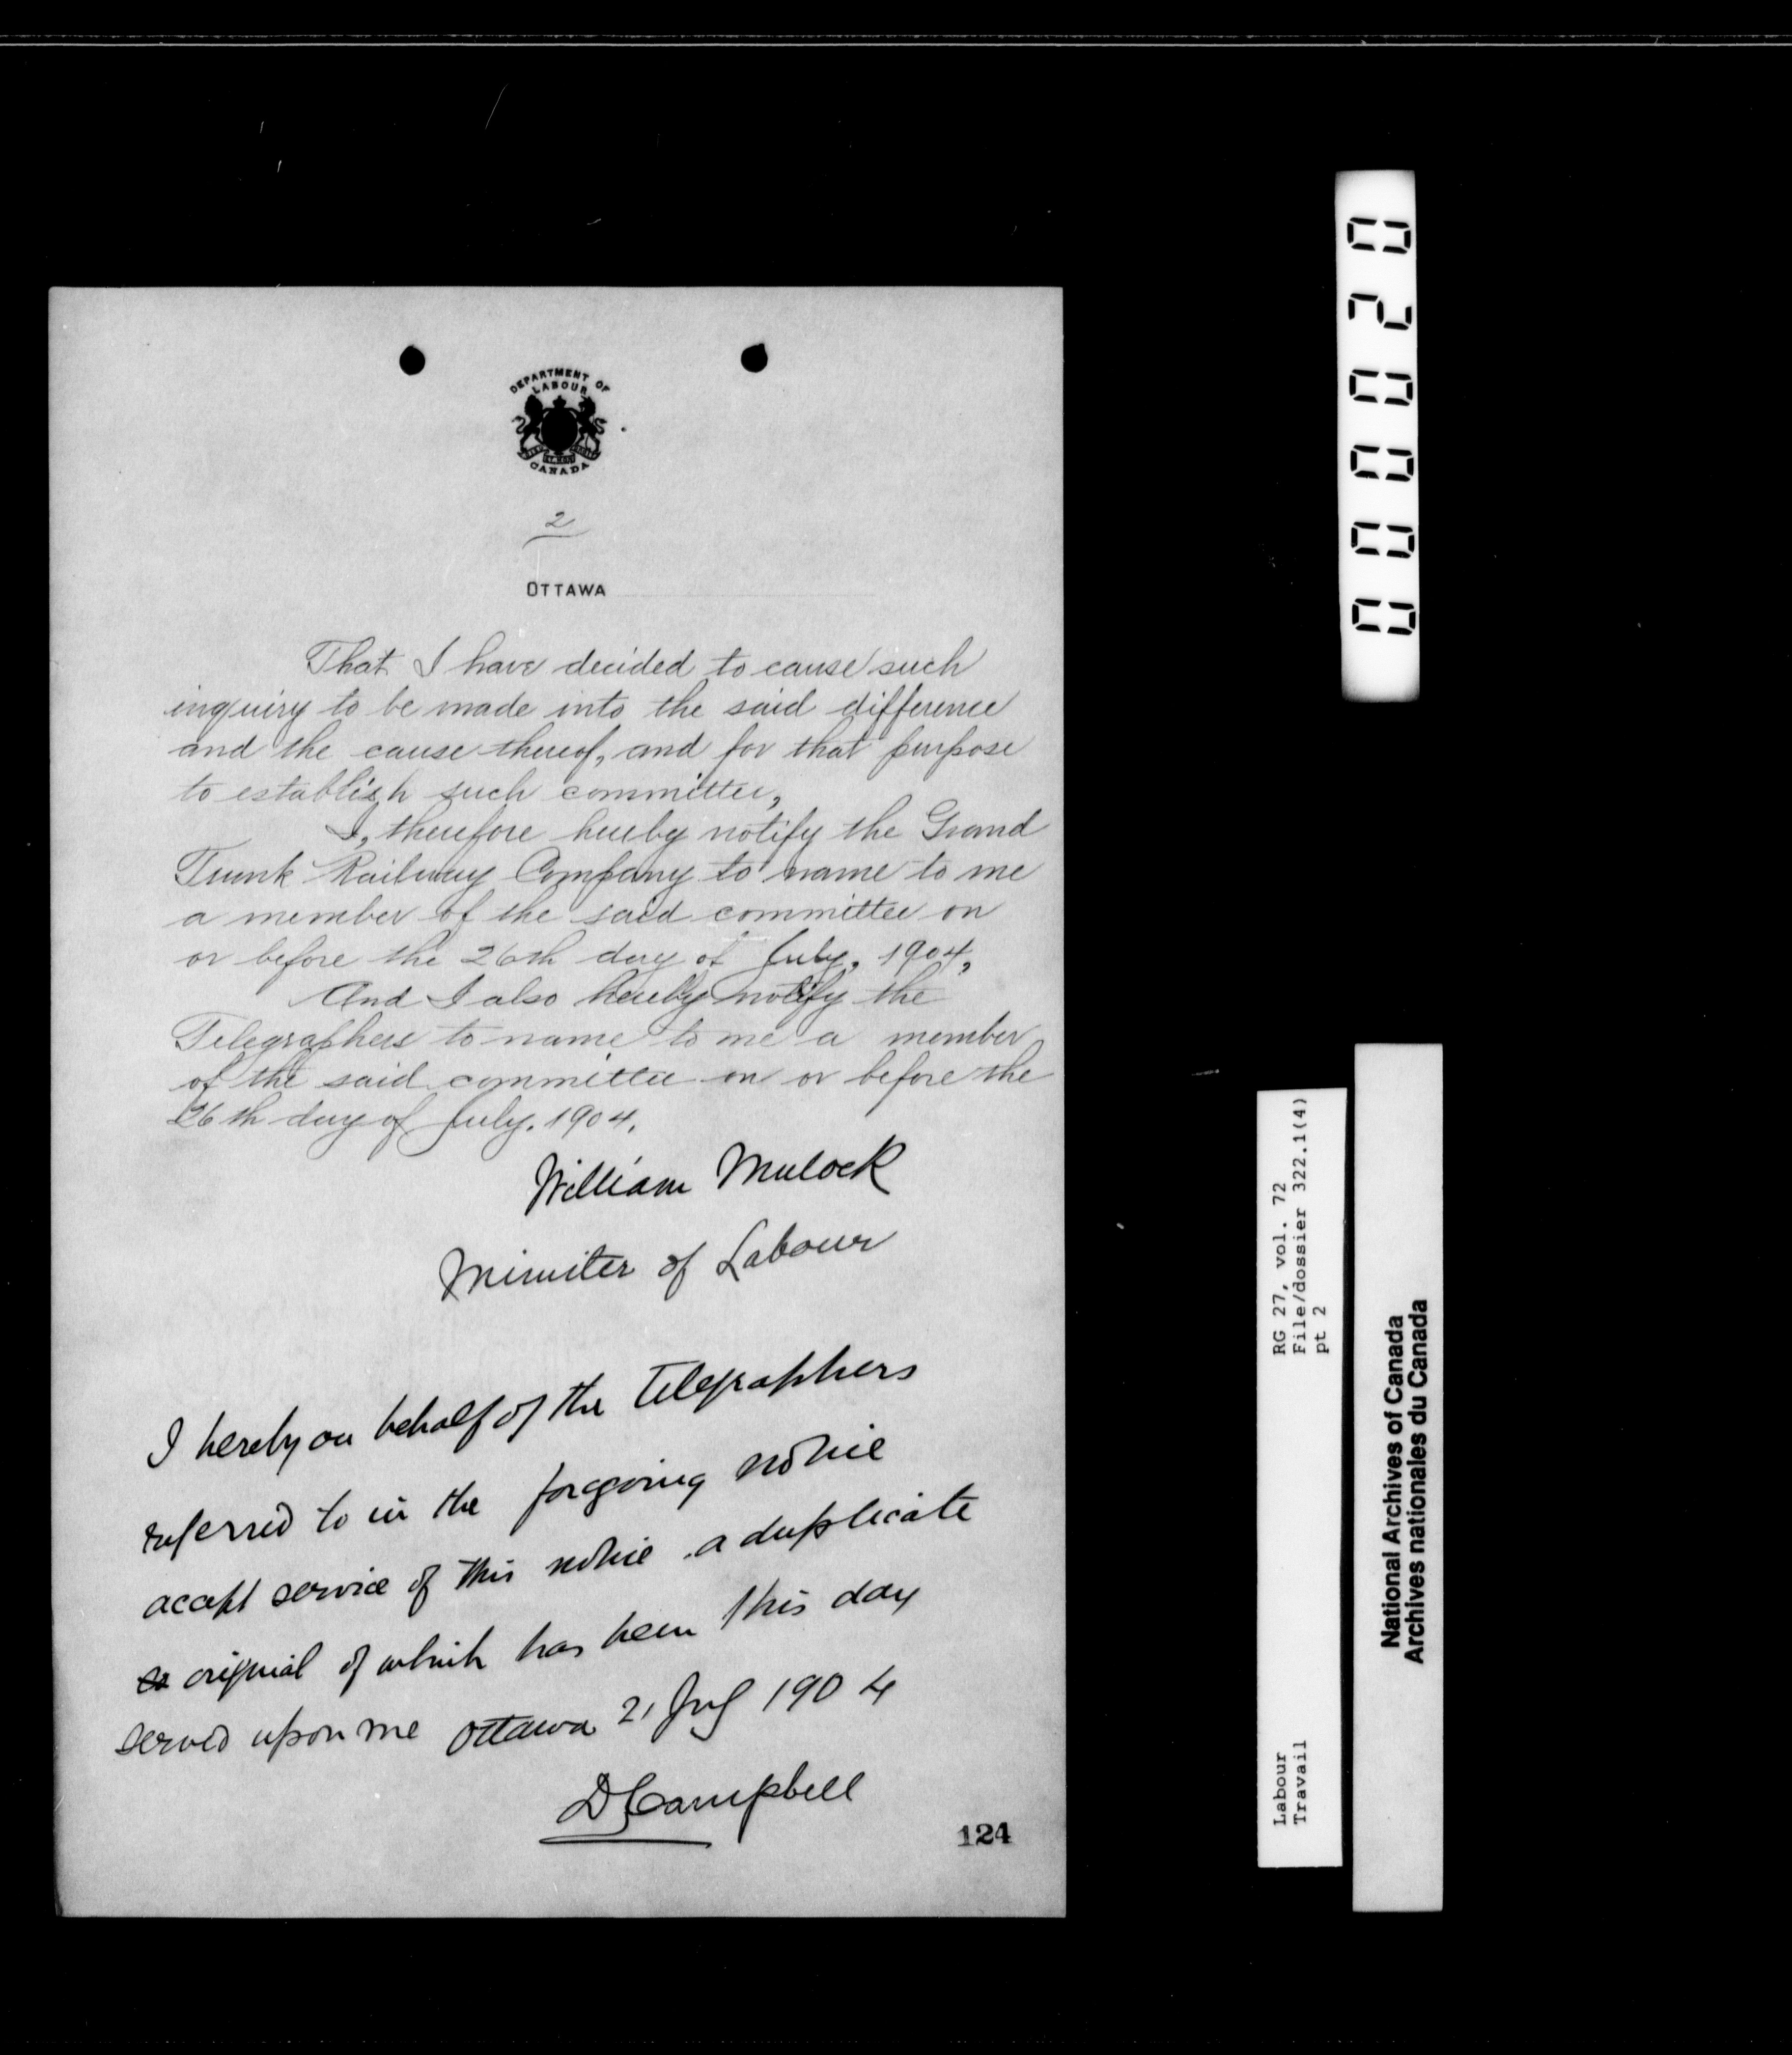 DEPARTMENT OF
LABOUR
CANADA
2
OTTAWA
That I have decided to cause such
inquiry to be made into the said difference
and the cause thereof, and for that purpose
to establish such committee,
I, therefore hereby notify the Grand
Trunk Railway Company to name to me
a member of the said committee on
or before the 26th day of July, 1904,
And I also hereby notify the
Telegraphers to name to me a member
of the said committee on or before the
26th day of July. 1904.
William Mulock
Minister of Labour
I hereby on behalf of the Telegraphers
referred to in the foregoing notice
accept service of this notice a duplicate
original of which has been this day
served upon me Ottawa 21 July 1904
D Campbell
124
000020
RG 27, vol. 72
File/dossier 322.1(4)
pt 2
Labour
Travail
National Archives of Canada
Archives nationales du Canada